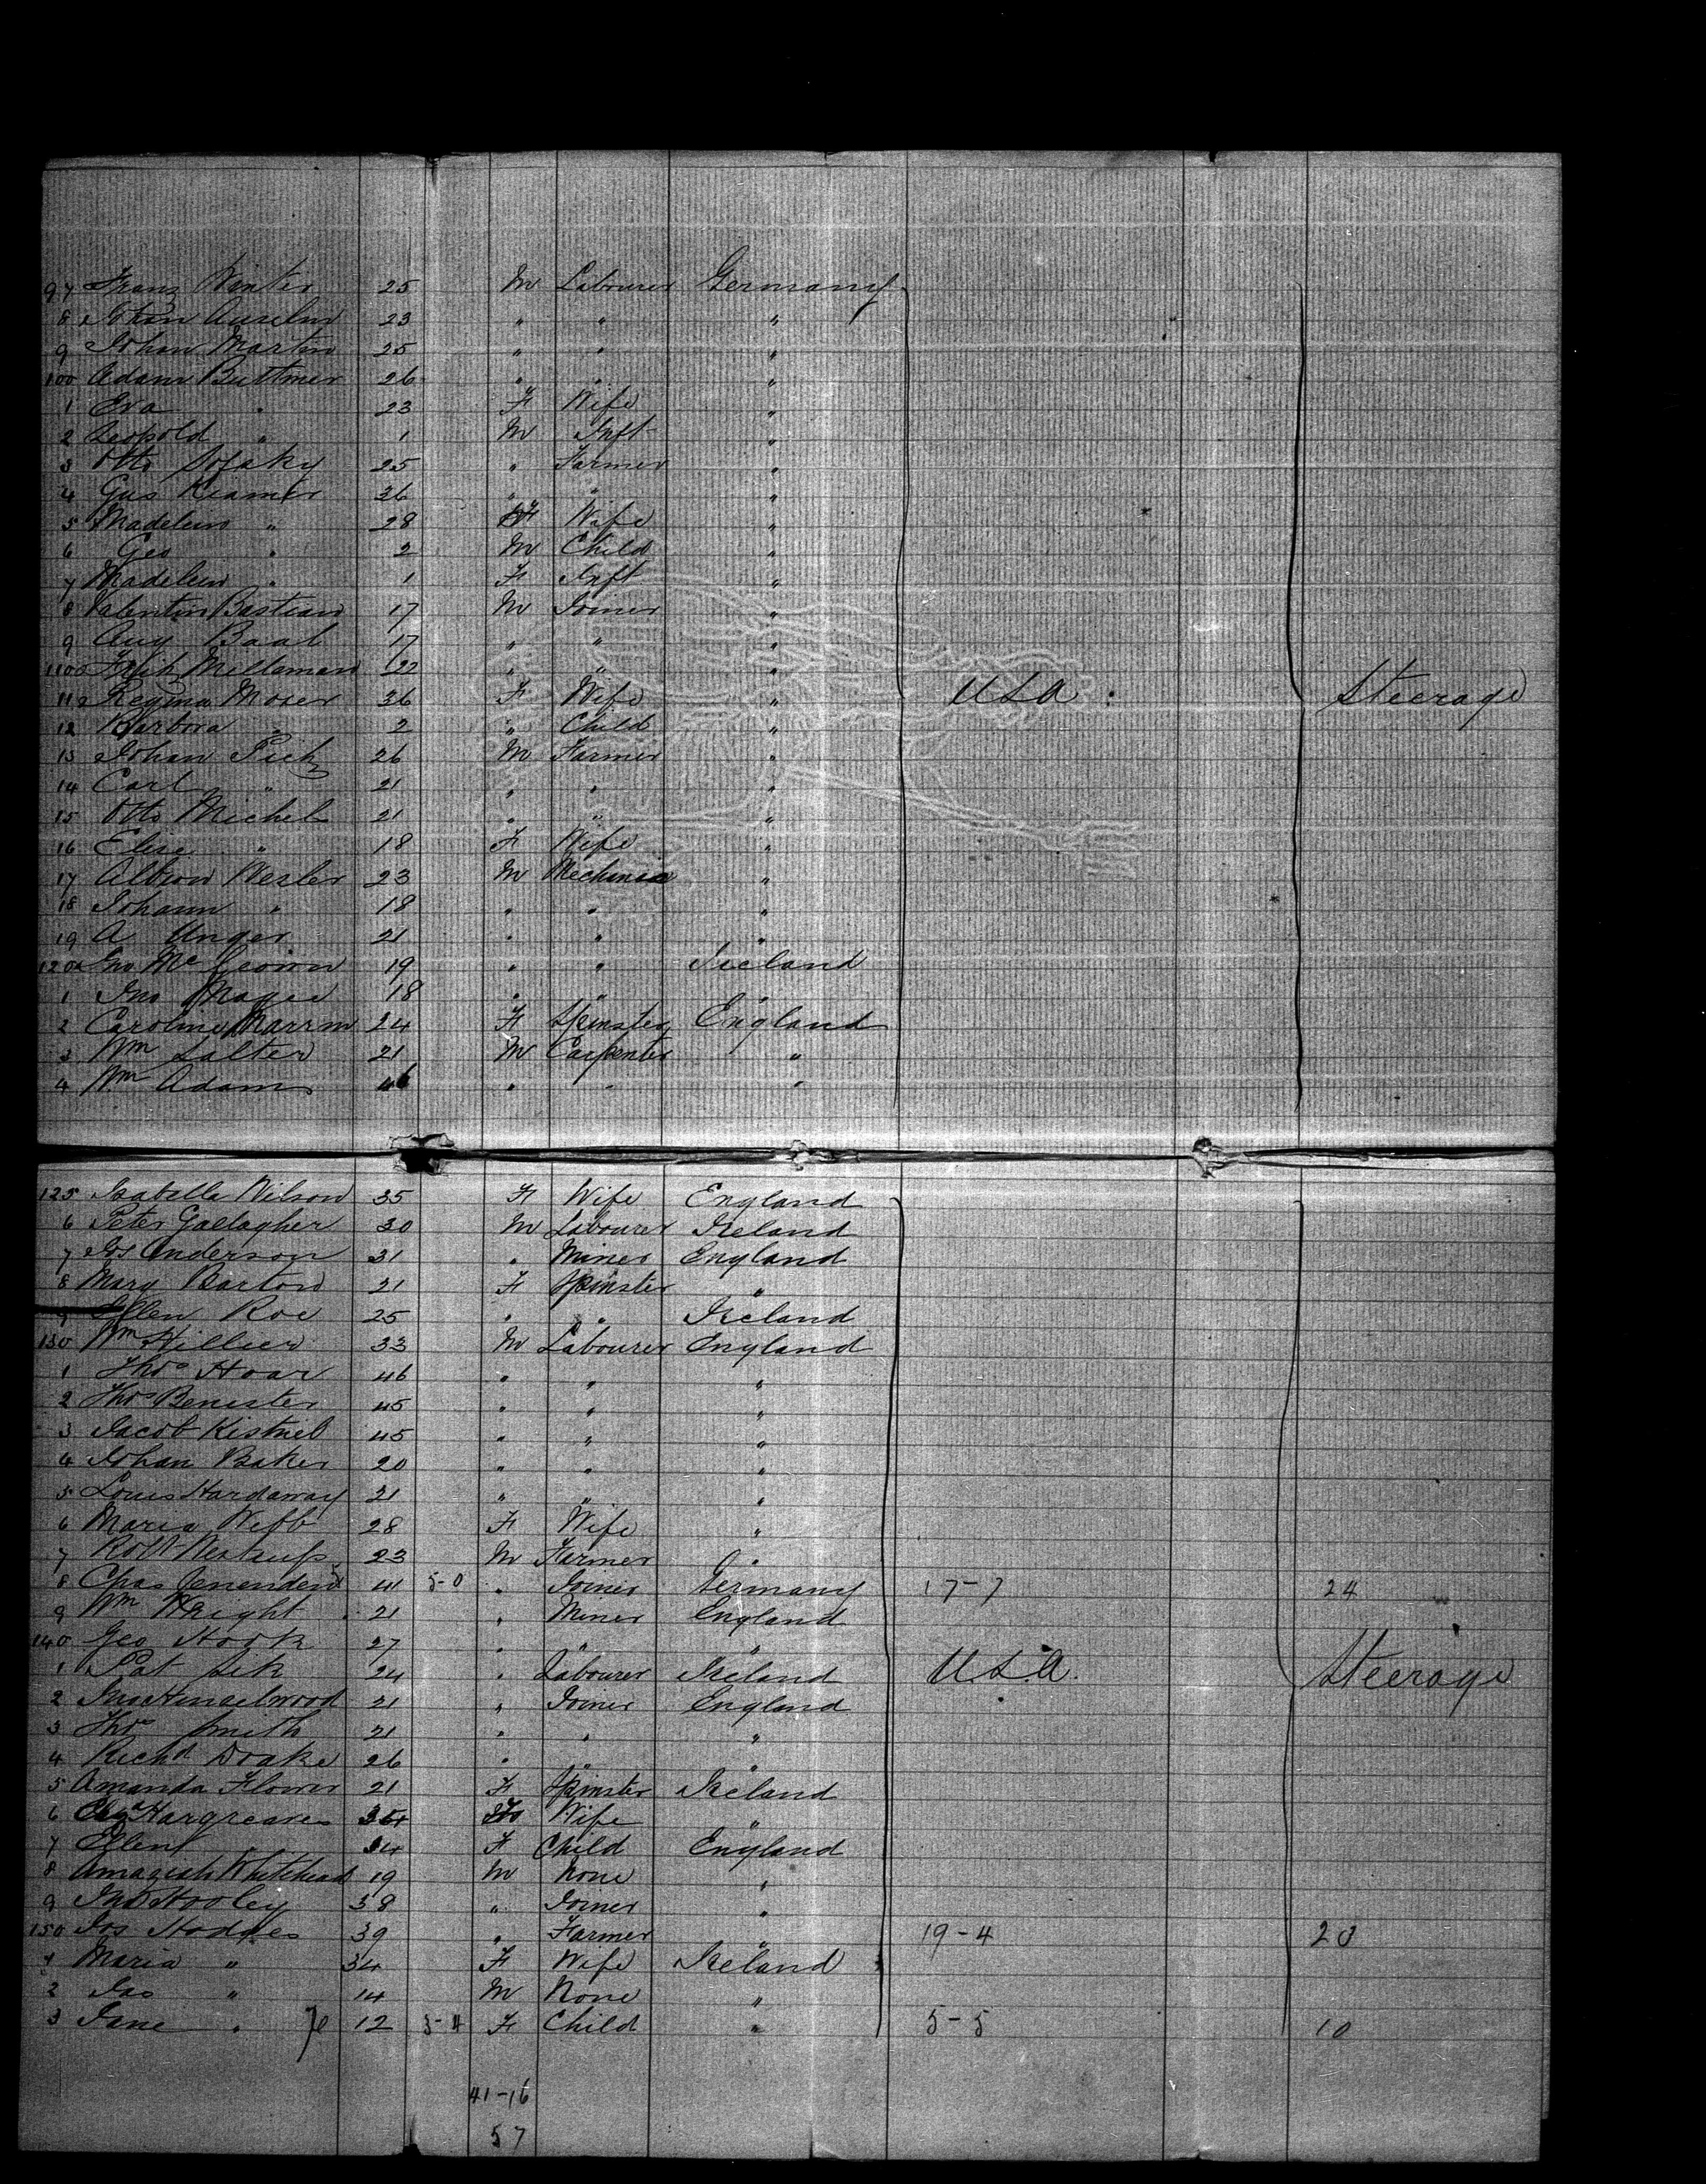 97 Franz Winter 25 M Labourer Germany
8 Johan Anselm 23 " " "
9 Johan Martin 25 " " "
100 Adam Buttmer 26 " " "
1 Eva " 23 F Wife "
2 Leopold " 1 M Inft "
3 Otto Sofsky 25 " Farmer "
4 Gus Kramer 36 " " "
5 Madelein " 28 F Wife "
6 Geo " 2 M Child "
7 Madelein " 1 F Inft "
8 Valentin Bastian 17 M Joiner "
9 Aug Baal 17 " " "
110 Fritz Milleman 22 " " "
11 Regina Moser 36 F Wife " USA. Steerage
12 Barbora " 2 " Child "
13 Johan Pick 26 M Farmer "
14 Carl " 21 " " "
15 Otto Michel 21 " " "
16 Elise " 18 F Wife "
17 Albion Wesler 23 M Mechinic "
18 Johann " 18 " " "
19 A Unger 21 " " "
120 Jno McGeown 19 " " Ireland
1 Jno Magee 18 " " "
2 Caroline 24 F Spinster England
3 Wm Salter 21 M Carpenter "
4 Wm Adams 46 " " "
125 Isabella Wilson 35 F Wife England
6 Peter Gallagher 30 M Labourer Ireland
7 Jos Anderson 31 " Miner England
8 Mary Barton 21 F Spinster "
9 Ellen Roe 25 " " Ireland
130 Wm Hillier 33 M Labourer England
1 Thos Hoar 46 " " "
2 Thos Benister 45 " " "
3 Jacob 45 " " "
4 Johan Baker 20 " " "
5 Louis Hardaway 21 " " "
6 Maria Webb 28 F Wife "
7 Robt 23 M Farmer "
8 Chas 41 5-0 " Joiner Germany 17-7 24
9 Wm Wright 21 " Miner England
140 Geo Hook 27 " " "
1 Pat 24 " Labourer Ireland U.S.A. Steerage
2 Jno Hinselwood 21 " Joiner England
3 Thos Smith 21 " " "
4 Richd Drake 26 " " "
5 Amanda Flower 21 F Spinster Ireland
6 Hargreaves Wife "
7 Ellen " F Child England
8 Amaziah Whitehead 19 M None "
9 Jno Hooley 38 " Joiner "
150 Jos Hodges 39 " Farmer " 19-4 23
1 Maria " 34 F Wife Ireland
2 Jas " 14 M None "
3 Jane " 12 5-4 F Child " 5-5 10
41-16
57